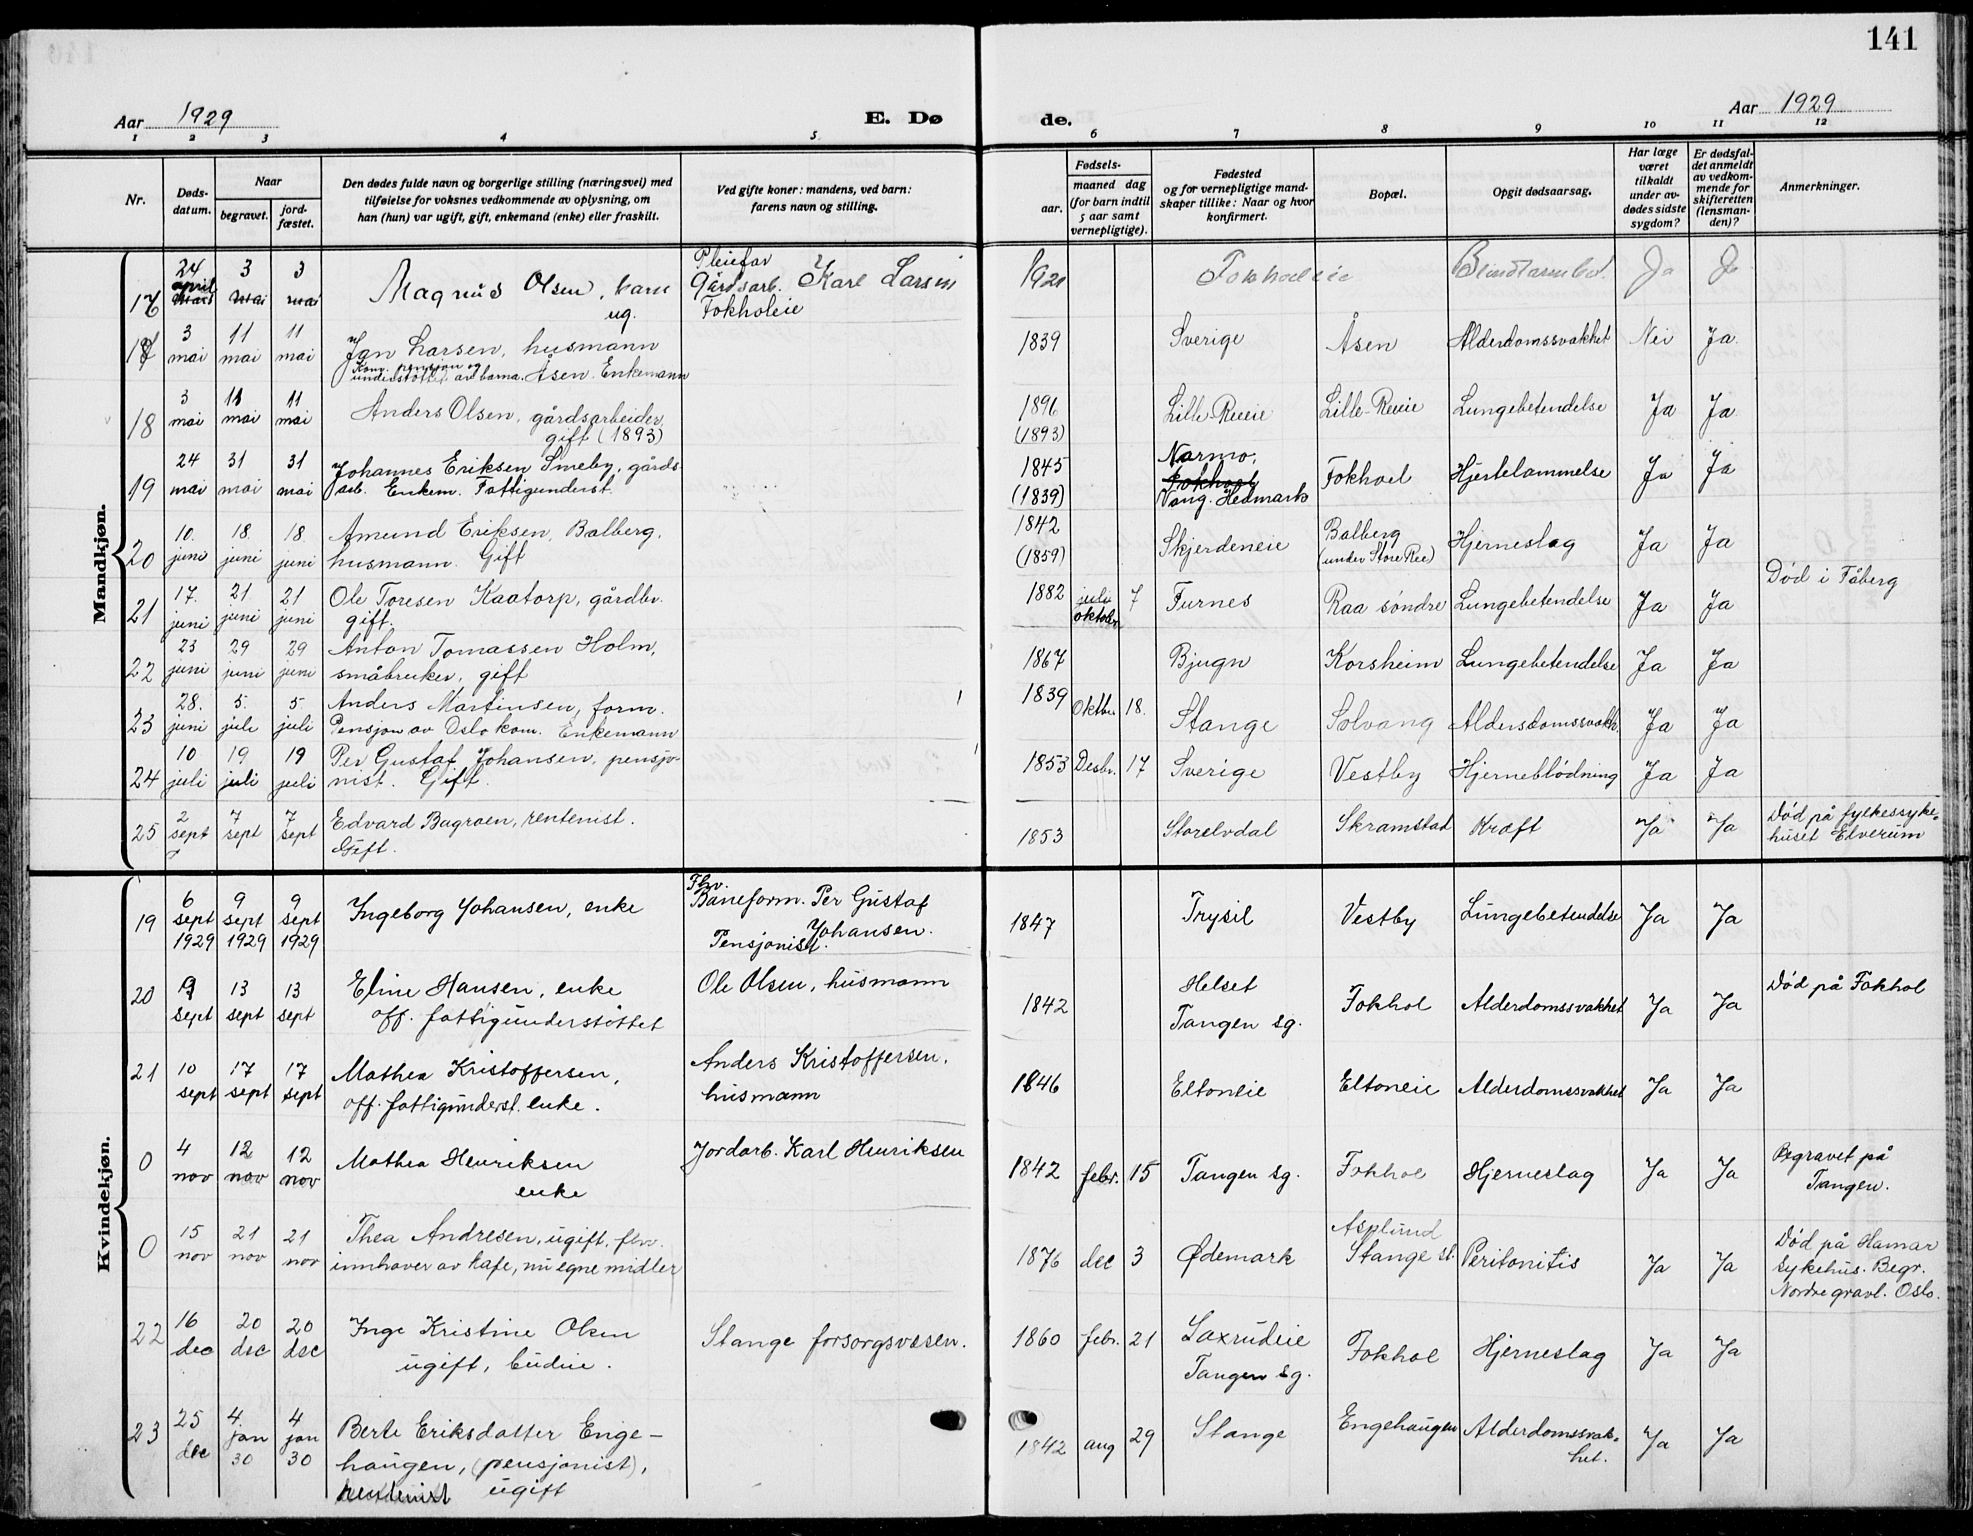 141
Aar 1929
E. Dø
de.
Aar 1929
1 2 3 4 5. 6 7 8 9 10 11 12
Nr.
Døds-
datum.
Naar
begravet.
jord-
fæstet.
Den dødes fulde navn og borgerlige stilling (næringsvei) med
tilføielse for voksnes vedkommende av oplysning, om
han (hun) var ugift, gift, enkemand (enke) eller fraskilt.
Ved gifte koner: mandens, ved barn:
farens navn og stilling.
Fødsels-
aar.
maaned dag
(for barn indtil
5 aar samt
vernepligtige).
Fødested
og for vernepligtige mand-
skaper tillike: Naar og hvor
konfirmert.
Bopæl.
Opgit dødsaarsag.
Har læge
været
tilkaldt
under av-
dødes sidste
sygdom?
Er dødsfal-
det anmeldt
av vedkom-
mende for
skifteretten
(lensman-
den)?
Anmerkninger.
Mandkjøn.
24 3 3 Pleiefar
april mai mai Magnus Olsen, barn Gårdsarb. Karl Larsen 1921 Fokholeie Blindtarmbet. Ja Ja
ug. Fokholeie
3 11 11
mai mai mai Jan Larsen, husmann 1839 Sverige Åsen Alderdomssvakhet Nei Ja.
Kom. pensjon og
understøttet av barna. Åsen. Enkemann
3 11 11
18 mai mai mai Anders Olsen, gårdsarbeider 1896 Lille-Reeie Lille-Reeie Lungebetendelse Ja Ja.
gift (1893) (1893)
24 31 31 Johannes Eriksen Smeby, gårds- 1845 Narmo, Fokhol Hjertelammelse Ja Ja
19 mai mai mai arb. Enkem. Fattigunderst. (1839) Fokhol
Vang. Hedmark
10. 18. 18. Amund Eriksen, Balberg, 1842 Skjerdeneie Balberg Hjerneslag Ja Ja
20 juni juni juni husmann. Gift (1859) (under Store Ree)
17. 21 21 Ole Toresen Kaatorp, gårdbr. 1882 juli 7 Furnes Raa søndre Lungebetendelse Ja Ja Død i Fåberg
21 juni juni juni gift. oktober
23 29 29 Anton Tomassen Holm, 1867 Bjugn Korsheim Lungebetendelse Ja Ja
22 juni juni juni småbruker, gift
28. 5. 5 Anders Martinsen, form. 1839 Oktbr. 18. Stange Solvang Aldersdomssvakh. Ja Ja
23 juni juli juli Pensjon av Oslo kom. Enkemann
10 19 19 Per Gustaf Johansen, pensjo- 1853 Desbr. 17 Sverige Vestby Hjerneblödning Ja Ja
24 juli juli juli nist. Gift.
2 7 7 Edvard Bagroen, rentenist. 1853 Storelvdal Skramstad Kræft Ja Ja Død på fylkessyke-
25 sept sept sept Gift. huset Elverum
Kvindekjøn.
6 9 9 Fhv.
19 sept sept sept Ingeborg Johansen, enke Baneform. Per Gustaf 1847 Trysil Vestby Lungebetendelse Ja Ja
1929 1929 1929 Pensjonist. Johansen.
20 9 13 13 Eline Hansen, enke Ole Olsen, husmann 1842 Helset Fokhol Alderdomssvakhet Ja Ja Død på Fokhol
sept sept sept off. fattigunderstöttet Tangen sg.
21 10 17 17 Mathea Kristoffersen, Anders Kristoffersen, 1846 Eltoneie Eltoneie Alderdomssvakhet Ja Ja
sept sept sept off. fattigunderst. enke. husmann
0 4 12 12 Mathea Henriksen Jordarb. Karl Henriksen 1842 febr. 15 Tangen sg. Fokhol Hjerneslag Ja Ja Begravet på
nov nov nov enke Tangen.
0 15 21 21 Thea Andresen, ugift, fhv. 1876 dec 3 Ødemark Asplund Peritonitis Ja Ja Død på Hamar
nov nov nov innhaver av kafe, nu egne midler Stange st. sykehus. Begr.
Nordre gravl. Oslo.
22 16 20 20 Inge Kristine Olsen Stange forsorgsvesen. 1860 febr. 21 Laxrudeie Fokhol Hjerneslag Ja Ja
dec dec dec ugift, budeie. Tangen sg.
23 25 4. 4 Berte Eriksdatter Enge- 1842 aug 29 Stange Engehaugen Alderdomssvak- Ja Ja
dec jan jan haugen, (pensjonist), het.
30 30 ugift